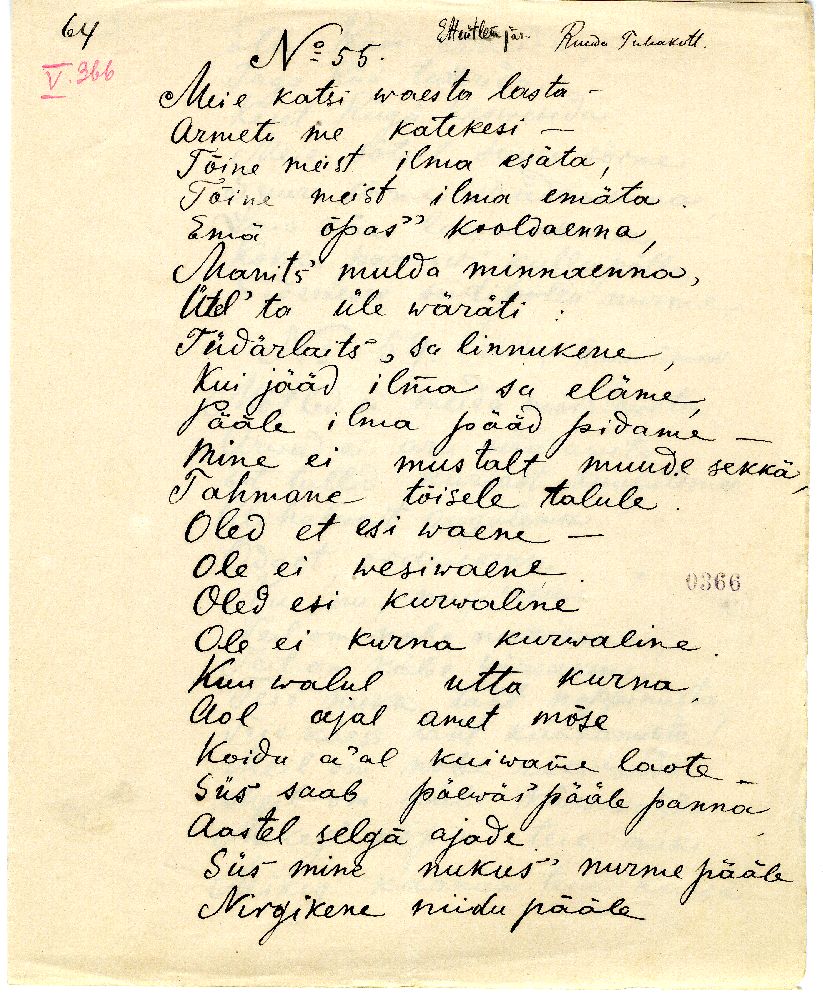 64
V. 366
№ 55.
Meie katsi waesta lasta –
Armetu me katekesi –
Tõine meist ilma esäta,
Tõine meist ilma emäta.
Emä õpas" kooldaenna,
Manits' mulda minnaenna,
Ütel' ta üle wäräti:
Tüdärlaits, sa linnukene,
Kui jääd ilma sa eläme,
Pääle ilma pääd pidame –
Mine ei mustalt muude sekkä,
Tahmane tõisele talule.
Oled et esi waene –
Ole ei wesiwaene.
Oled esi kurwaline
Ole ei kurna kurwaline.
Kuu walul utta kurna,
Aol ajal amet mõse
Koidu a'al kuiwame laote –
Siis saab päewäs' pääle panna,
Aastel selgä ajade.
Siis mine nukus' nurme pääle
Nirgikene niidu pääle
0366